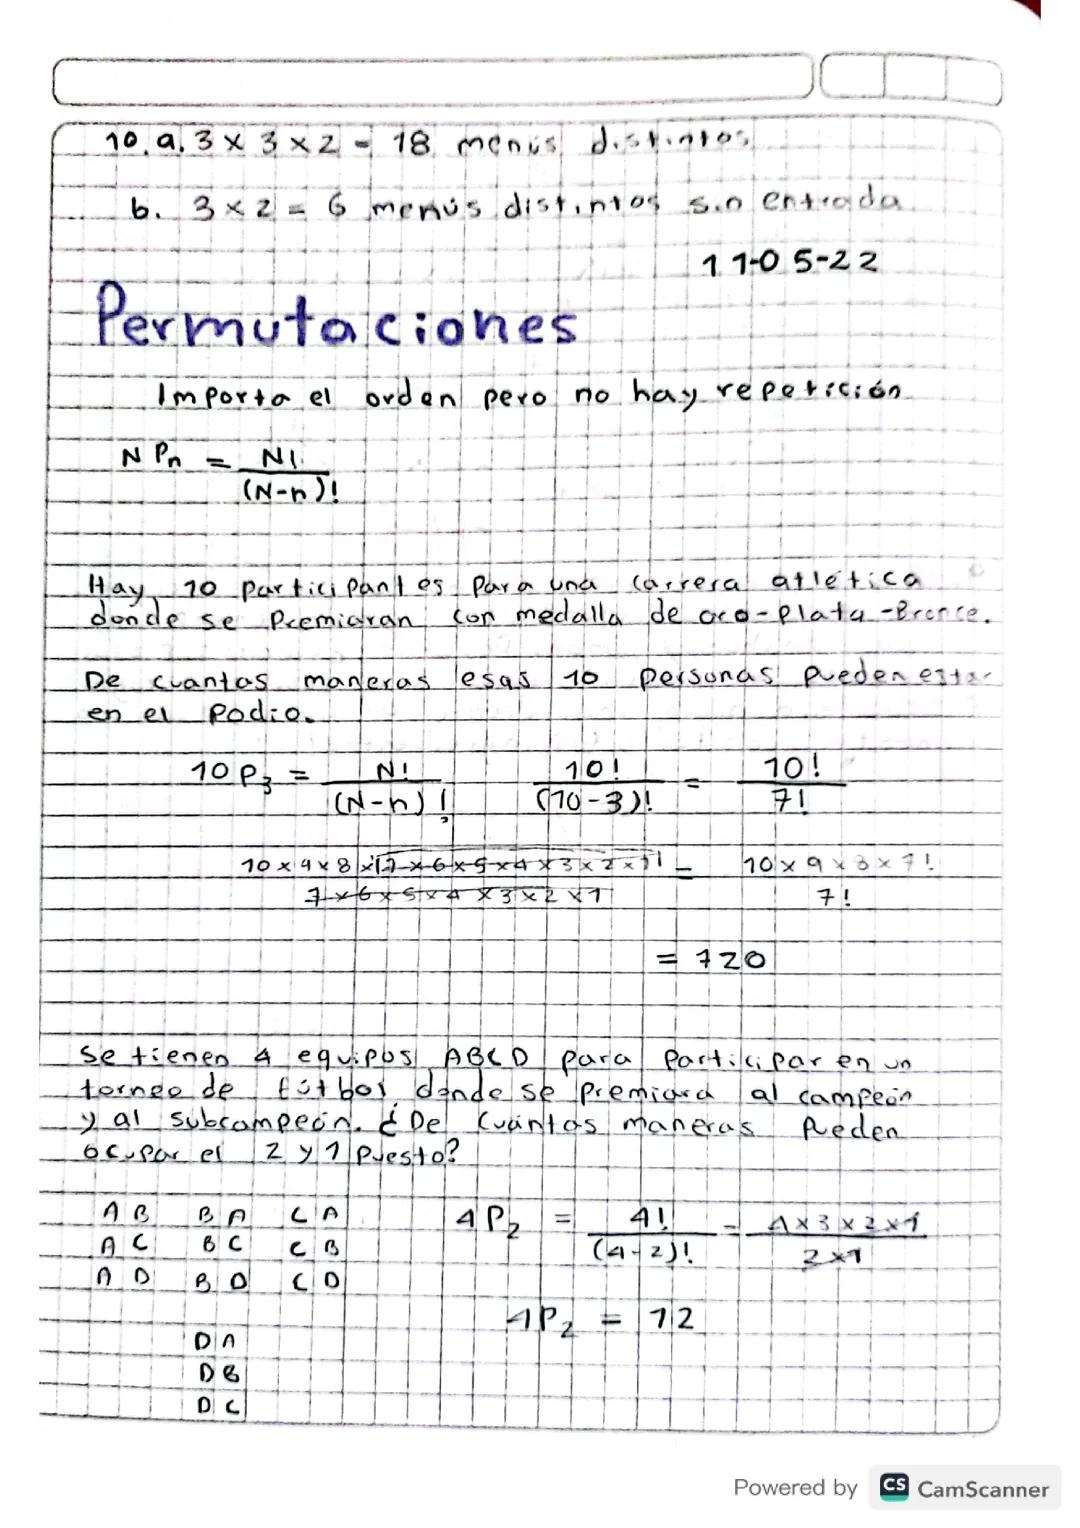 10. a. 3 x 3 x 2 = 18 menús distintos
b. 3 x 2 = 6 menús distintos sin entrada
11-05-22
Permutaciones
Importa el orden pero no hay repetición
N Pn = N! / (N-n)!
Hay 10 participantes para una carrera atlética
donde se premiaran con medalla de oro-plata-Bronce.
De cuantas maneras esas 10 personas pueden estar
en el podio.
10 P3 = N! / (N-n)! 10! / (10-3)! = 10! / 7!
10 x 9 x 8 x 7 x 6 x 5 x 4 x 3 x 2 x 1 / 7 x 6 x 5 x 4 x 3 x 2 x 1 = 10 x 9 x 8 x 7! / 7!
= 720
Se tienen 4 equipos ABCD para participar en un
torneo de fútbol donde se premiara al campeón
y al subcampeón. ¿De cuántas maneras pueden
ocupar el 2 y 1 puesto?
A B B A C A 4P2 = 4! / (4-2)! = 4 x 3 x 2 x 1 / 2 x 1
A C B C C B
A D B D C D
4P2 = 12
D A
D B
D C
Powered by CS CamScanner